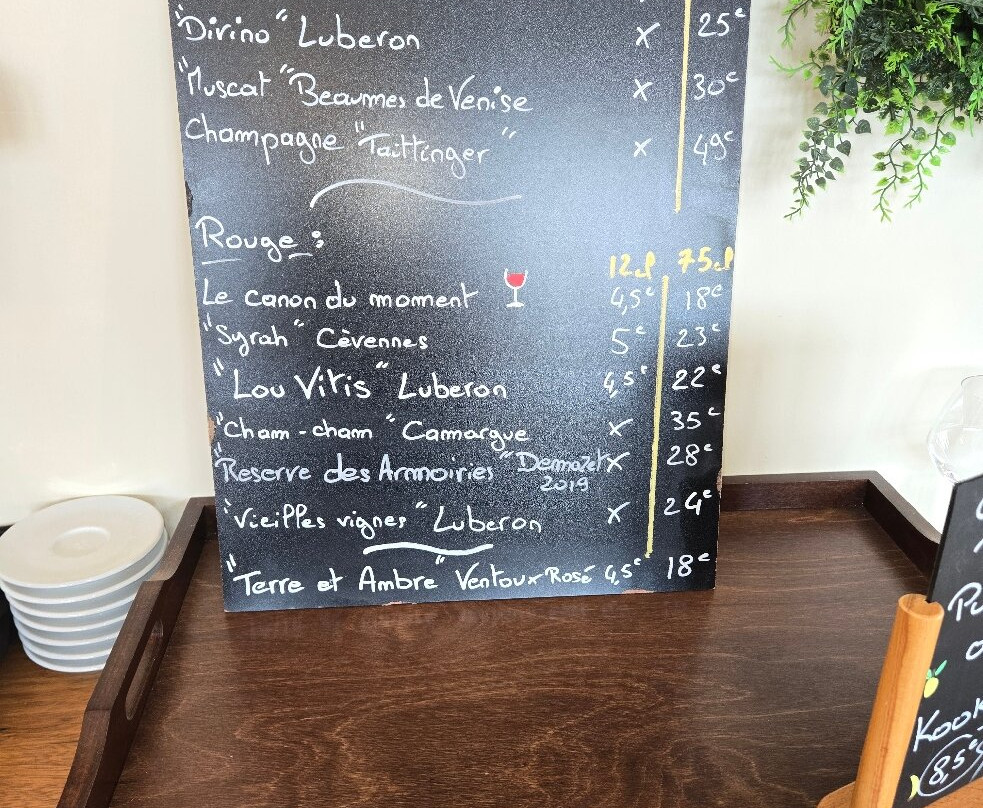 "Divino" Luberon x 25€
"Muscat" Beaumes de Venise x 30€
Champagne "Taittinger" x 49€
Rouge :
12cl 75cl
Le canon du moment 4,5€ 18€
"Syrah" Cèvennes 5€ 23€
"Lou Vitis" Luberon 4,5€ 22€
"Cham-cham" Camargue x 35€
"Reserve des Armoiries" Demazet x 28€
2019
"Vieilles vignes" Luberon x 24€
"Terre et Ambre" Ventoux Rosé 4,5€ 18€
Kook
8,5€